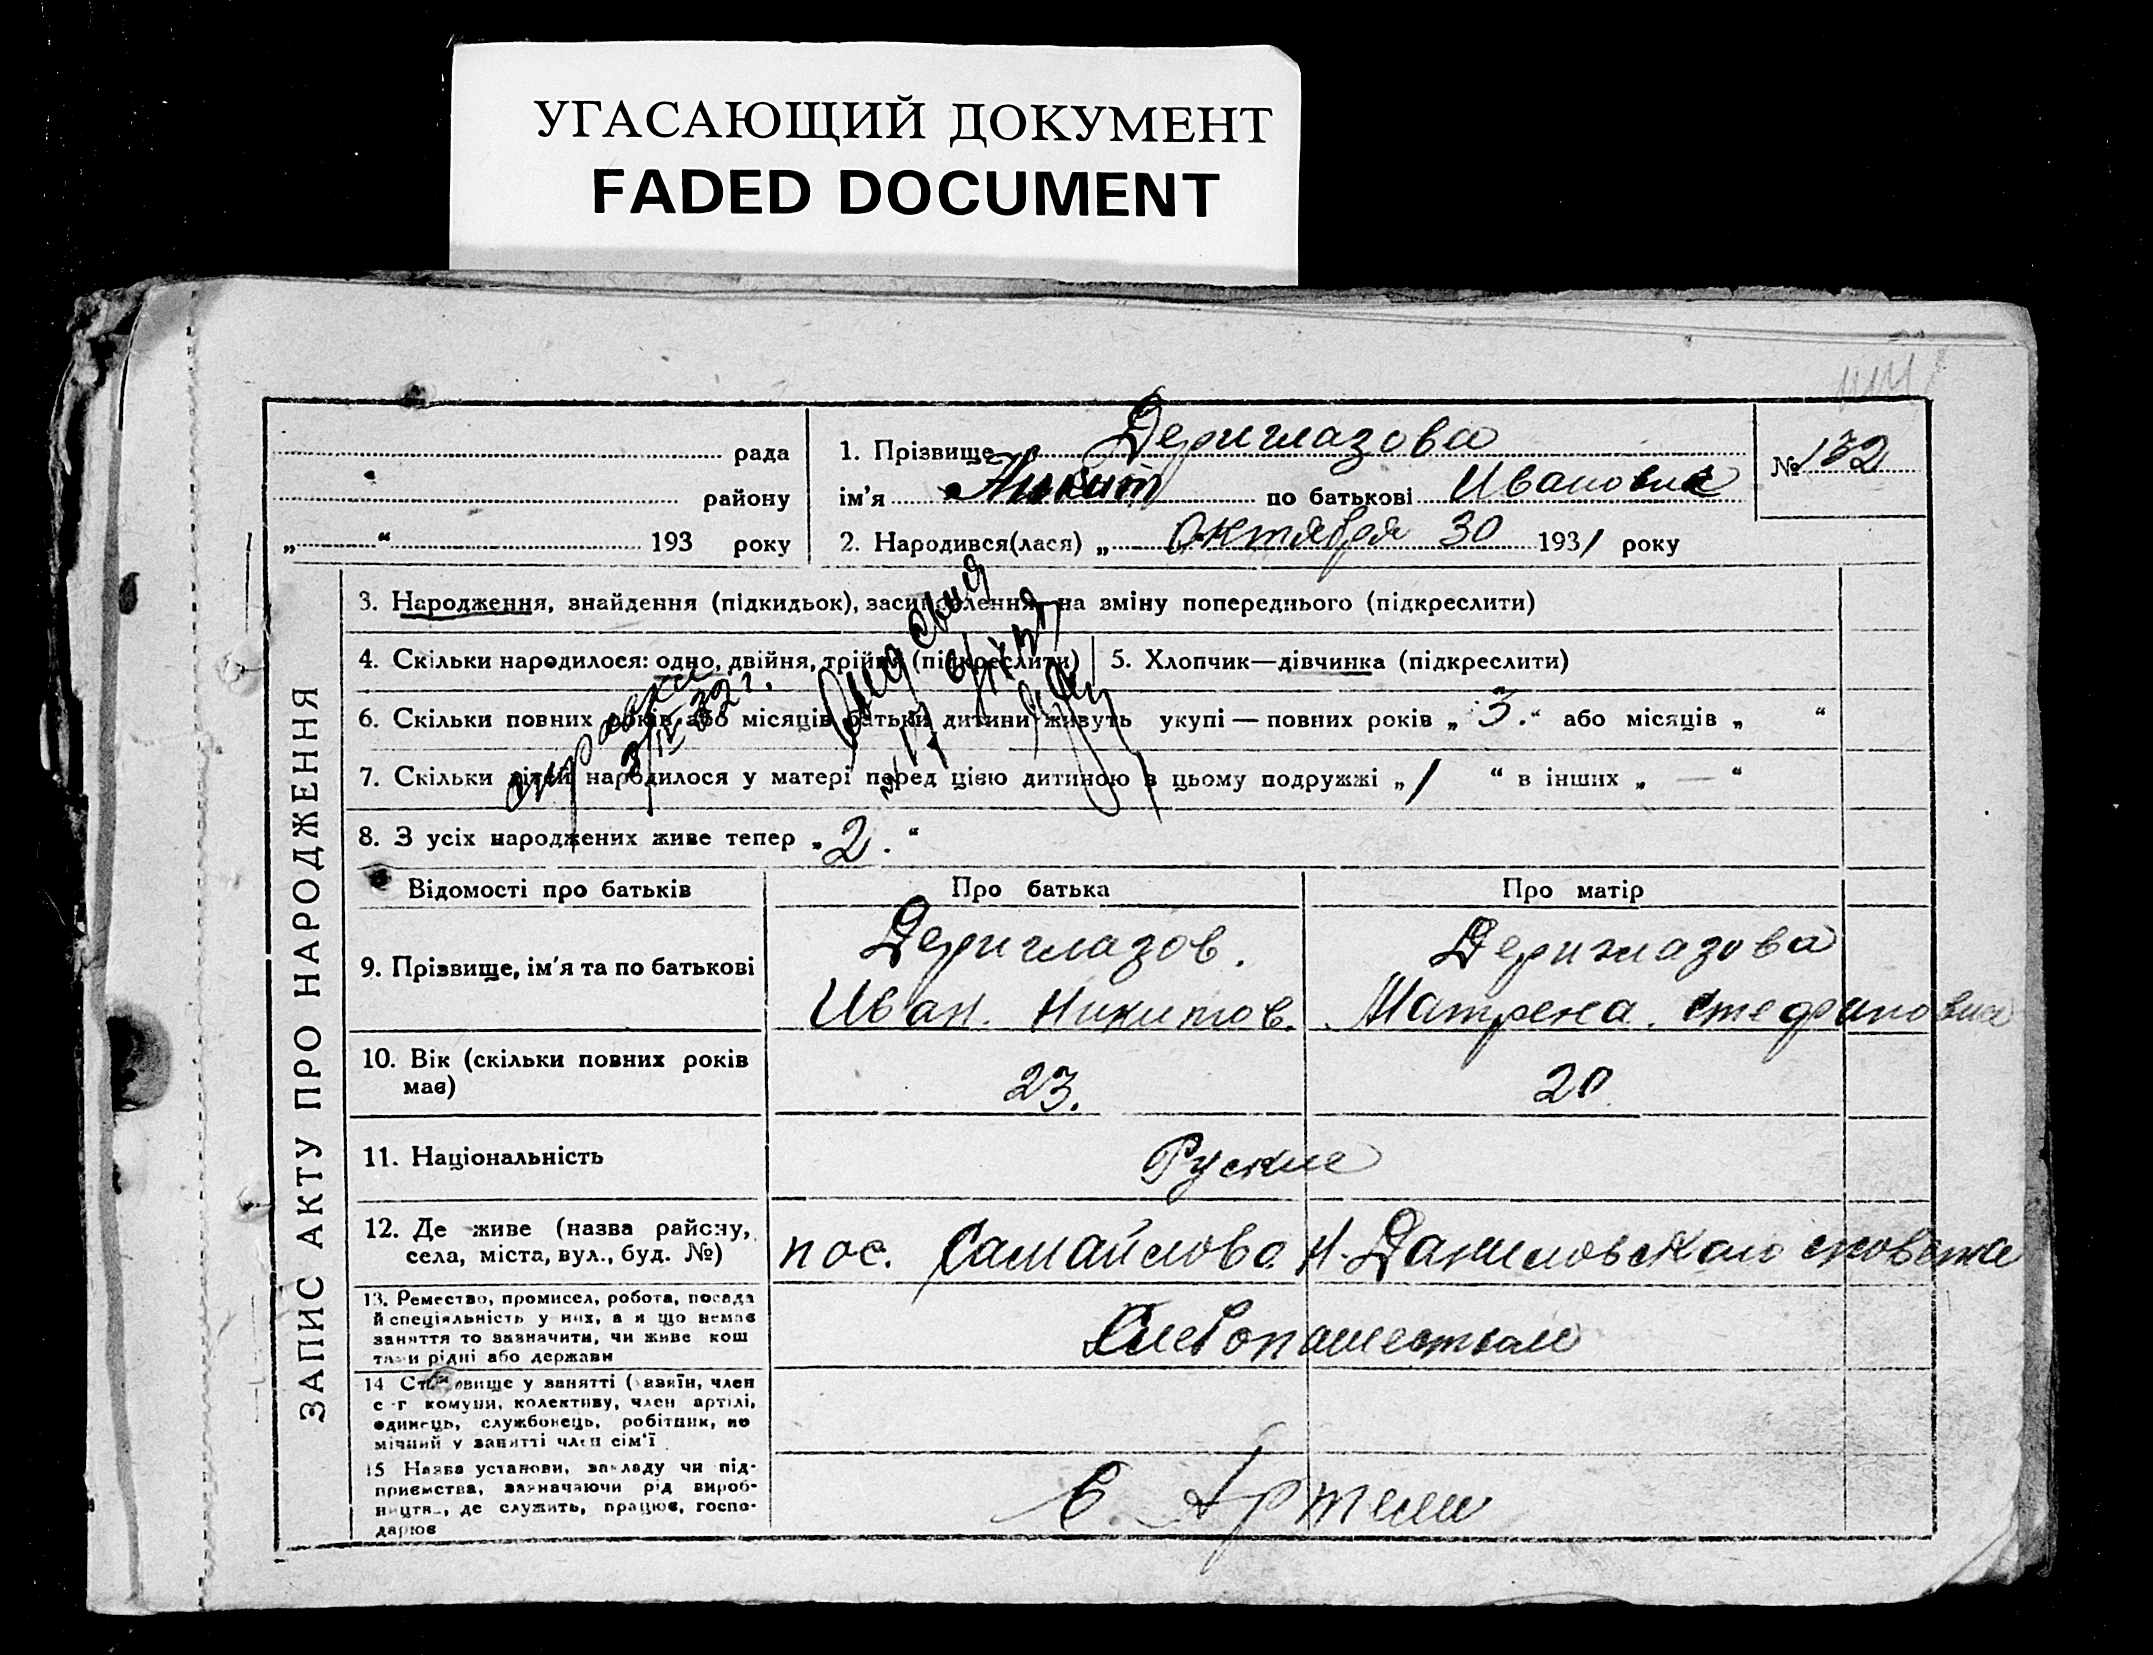 УГАСАЮЩИЙ ДОКУМЕНТ
FADED DOCUMENT
рада
району
„ “ 193 року
1. Прізвище Дериглазова
ім'я по батькові Ивановна
2. Народився(лася) „ Октября 30 1931 року
№ 132
ЗАПИС АКТУ ПРО НАРОДЖЕННЯ
3. Народження, знайдення (підкидьок), засиновлення, на зміну попереднього (підкреслити)
4. Скільки народилося: одно, двійня, трійня (підкреслити)
5. Хлопчик—дівчинка (підкреслити)
6. Скільки повних років або місяців батьки дитини живуть укупі — повних років „ 3. “ або місяців „ “
7. Скільки дітей народилося у матері перед цією дитиною в цьому подружжі „ 1 “ в інших „ — “
8. З усіх народжених живе тепер „ 2. “
Відомості про батьків
Про батька
Про матір
9. Прізвище, ім'я та по батькові
Дериглазов.
Иван. Никитов.
Дериглазова
Матрена. Стефановна
10. Вік (скільки повних років
має)
23.
20
11. Національність
Руские
12. Де живе (назва району,
села, міста, вул., буд. №)
пос. Н. Даниловского
13. Ремество, промисел, робота, посада
й спеціяльність у них, а я що немає
заняття то зазначити, чи живе кош
тами рідні або держави
14 Становище у занятті (хазяїн, член
с-г комуни, колективу, член артілі,
одинець, службовець, робітник, по
мічний у занятті член сім'ї
15 Назва установи, закладу чи під-
приємства, зазначаючи рід вироб-
ництв., де служить, працює, госпо-
дарює
в Артели